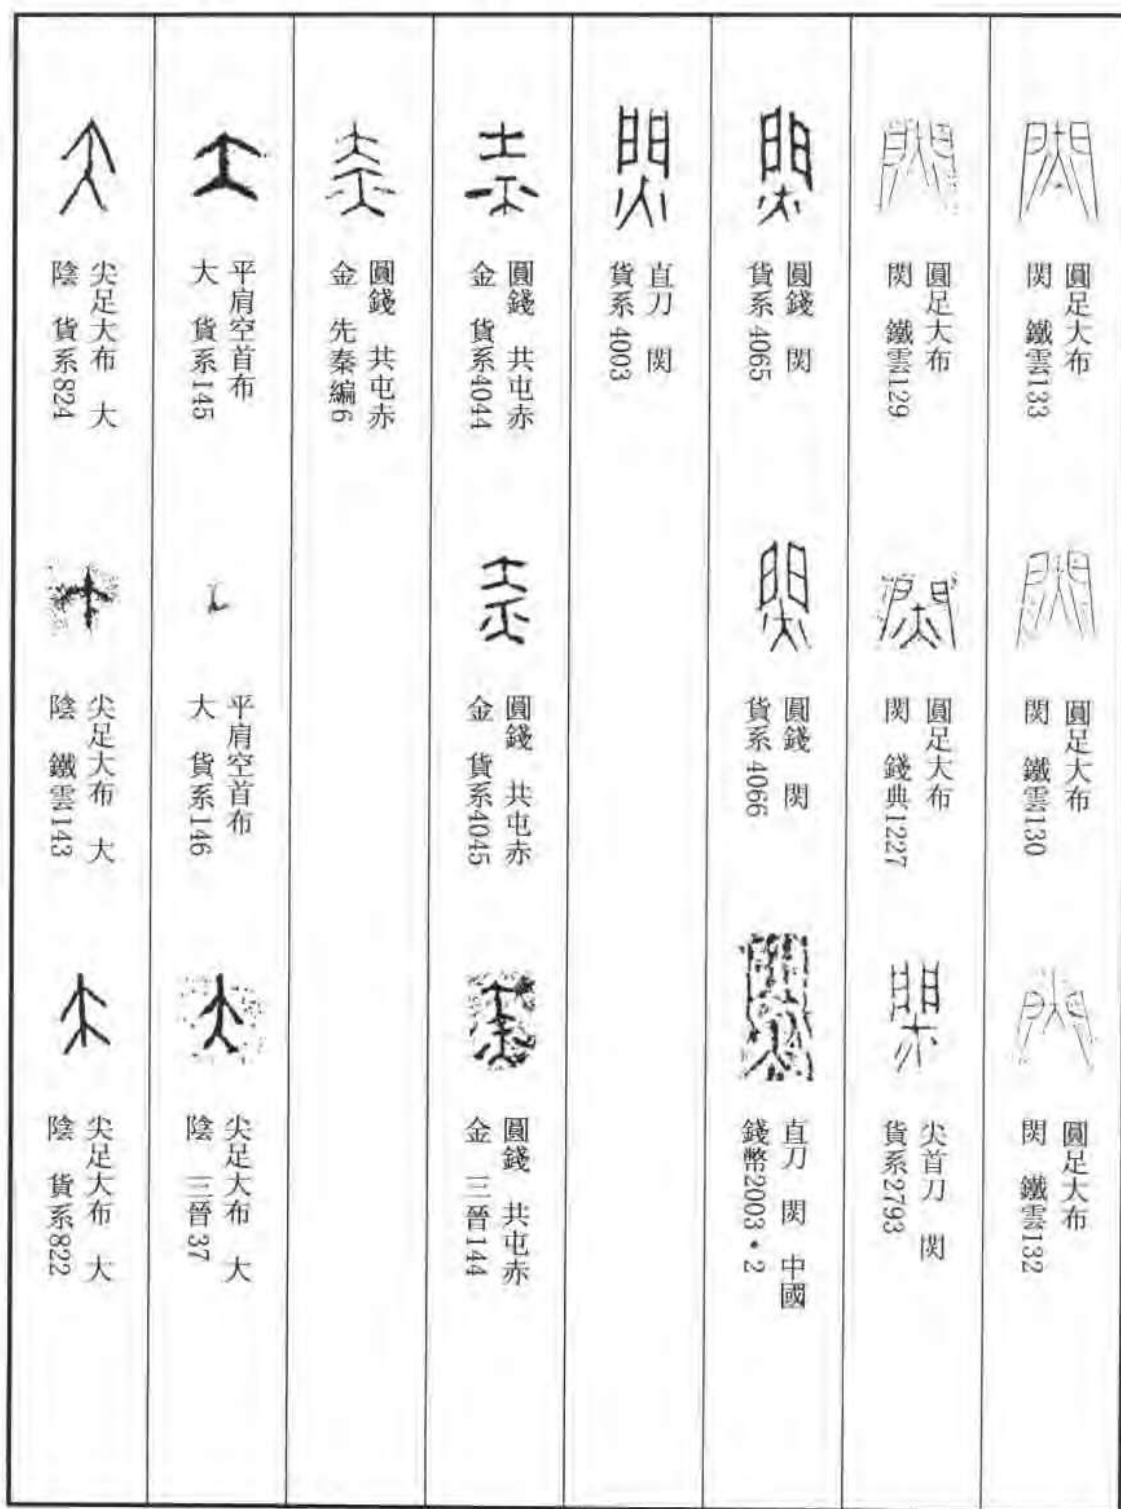 圓足大布
焛 鐵雲133
圓足大布
焛 鐵雲130
圓足大布
焛 鐵雲132
圓足大布
焛 鐵雲129
圓足大布
焛 錢典1227
尖首刀 焛
貨系2793
圓錢 焛
貨系4065
圓錢 焛
貨系4066
直刀 焛 中國
錢幣2003·2
直刀 焛
貨系4003
圓錢 共屯赤
金 貨系4044
圓錢 共屯赤
金 貨系4045
圓錢 共屯赤
金 三晉144
圓錢 共屯赤
金 先秦編6
平肩空首布
大 貨系145
平肩空首布
大 貨系146
尖足大布 大
陰 三晉37
尖足大布 大
陰 貨系824
尖足大布 大
陰 鐵雲143
尖足大布 大
陰 貨系822